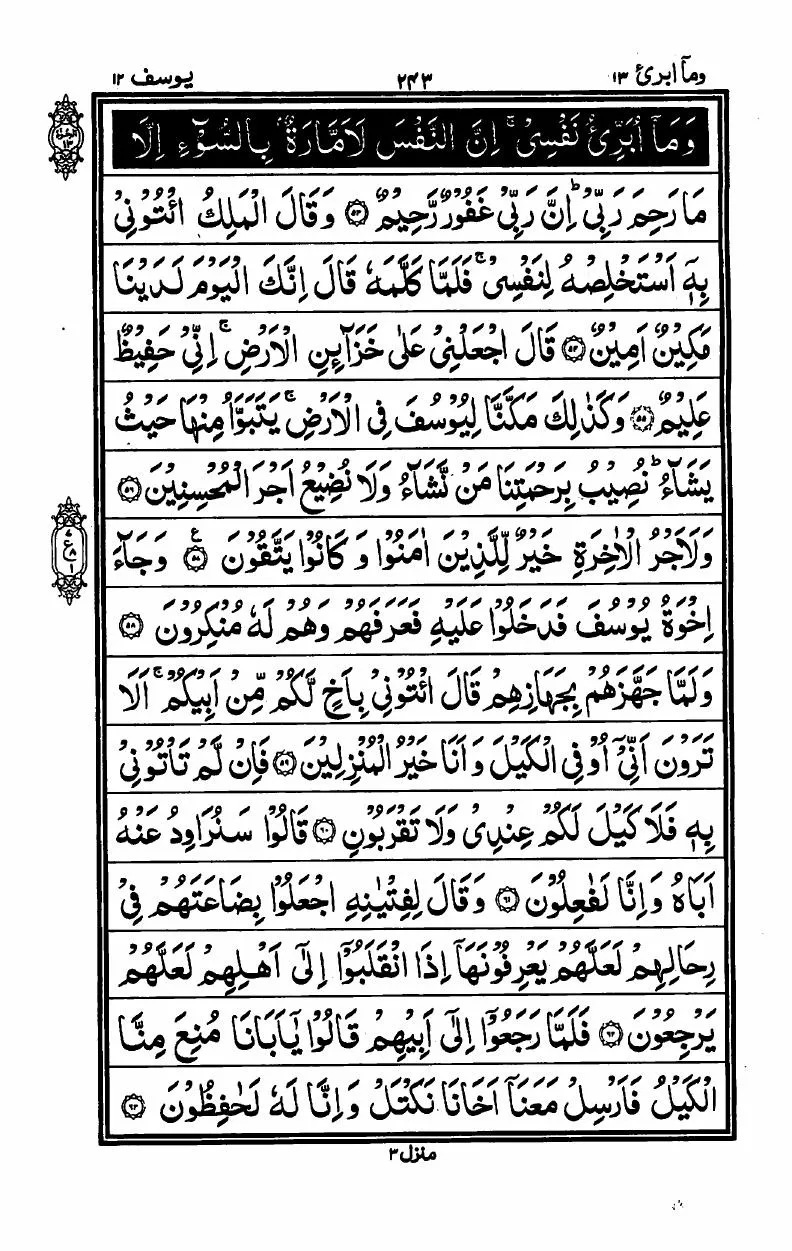 ومآ ابرئ ١٣
٢٤٣
يوسف ١٢
وَمَآ اُبَرِّئُ نَفْسِىْ ۚ اِنَّ النَّفْسَ لَاَمَّارَةٌۢ بِالسُّوْٓءِ اِلَّا
مَا رَحِمَ رَبِّىْ ؕ اِنَّ رَبِّىْ غَفُوْرٌ رَّحِيْمٌ ۝٥٣ وَقَالَ الْمَلِكُ ائْتُوْنِىْ
بِهٖۤ اَسْتَخْلِصْهُ لِنَفْسِىْ ۚ فَلَمَّا كَلَّمَهٗ قَالَ اِنَّكَ الْيَوْمَ لَدَيْنَا
مَكِيْنٌ اَمِيْنٌ ۝٥٤ قَالَ اجْعَلْنِىْ عَلٰى خَزَآئِنِ الْاَرْضِ ۚ اِنِّىْ حَفِيْظٌ
عَلِيْمٌ ۝٥٥ وَكَذٰلِكَ مَكَّنَّا لِيُوْسُفَ فِى الْاَرْضِ ۚ يَتَبَوَّاُ مِنْهَا حَيْثُ
يَشَآءُ ؕ نُصِيْبُ بِرَحْمَتِنَا مَنْ نَّشَآءُ وَلَا نُضِيْعُ اَجْرَ الْمُحْسِنِيْنَ ۝٥٦
وَلَاَجْرُ الْاٰخِرَةِ خَيْرٌ لِّلَّذِيْنَ اٰمَنُوْا وَكَانُوْا يَتَّقُوْنَ ۝٥٧ وَجَآءَ
اِخْوَةُ يُوْسُفَ فَدَخَلُوْا عَلَيْهِ فَعَرَفَهُمْ وَهُمْ لَهٗ مُنْكِرُوْنَ ۝٥٨
وَلَمَّا جَهَّزَهُمْ بِجَهَازِهِمْ قَالَ ائْتُوْنِىْ بِاَخٍ لَّكُمْ مِّنْ اَبِيْكُمْ ۚ اَلَا
تَرَوْنَ اَنِّىْۤ اُوْفِى الْكَيْلَ وَاَنَا خَيْرُ الْمُنْزِلِيْنَ ۝٥٩ فَاِنْ لَّمْ تَاْتُوْنِىْ
بِهٖ فَلَا كَيْلَ لَكُمْ عِنْدِىْ وَلَا تَقْرَبُوْنِ ۝٦٠ قَالُوْا سَنُرَاوِدُ عَنْهُ
اَبَاهُ وَاِنَّا لَفٰعِلُوْنَ ۝٦١ وَقَالَ لِفِتْيٰنِهِ اجْعَلُوْا بِضَاعَتَهُمْ فِىْ
رِحَالِهِمْ لَعَلَّهُمْ يَعْرِفُوْنَهَاۤ اِذَا انْقَلَبُوْۤا اِلٰٓى اَهْلِهِمْ لَعَلَّهُمْ
يَرْجِعُوْنَ ۝٦٢ فَلَمَّا رَجَعُوْۤا اِلٰٓى اَبِيْهِمْ قَالُوْا يٰۤاَبَانَا مُنِعَ مِنَّا
الْكَيْلُ فَاَرْسِلْ مَعَنَاۤ اَخَانَا نَكْتَلْ وَاِنَّا لَهٗ لَحٰفِظُوْنَ ۝٦٣
منزل ٣